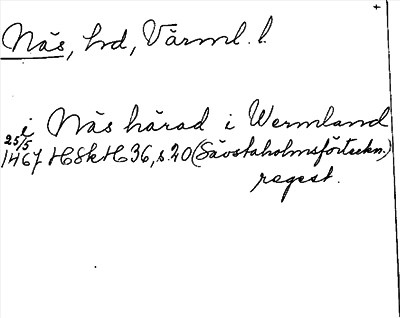 +
Näs, hd, Värml. l.
i Näs härad i Wermland
25/5
1467 HSkH 36, s. 20 (Säostaholmsförteckn.)
regest.